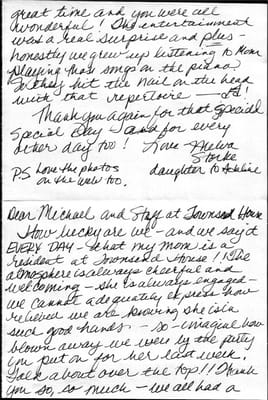 great time and you were all
wonderful! The entertainment
was a real surprise and plus -
honestly we grew up listening to Mom
playing those songs on the piano.
So they hit the nail on the head
with that repertoire
Thank you again for that special
special Day - and for every
other day too! Love Melva
Storke
P.S. Love the photos daughter to
on the web too.
Dear Michael and Staff at Townsend House
How lucky are we - and we say it
EVERY DAY - that my mom is a
resident at Townsend House! The
atmosphere is always cheerful and
welcoming - she is always engaged -
we cannot adequately express how
relieved we are knowing she is in
such good hands - so - imagine how
blown away we were by the party
you put on for her last week.
Talk about over the top!! Thank
you so, so much - we all had a